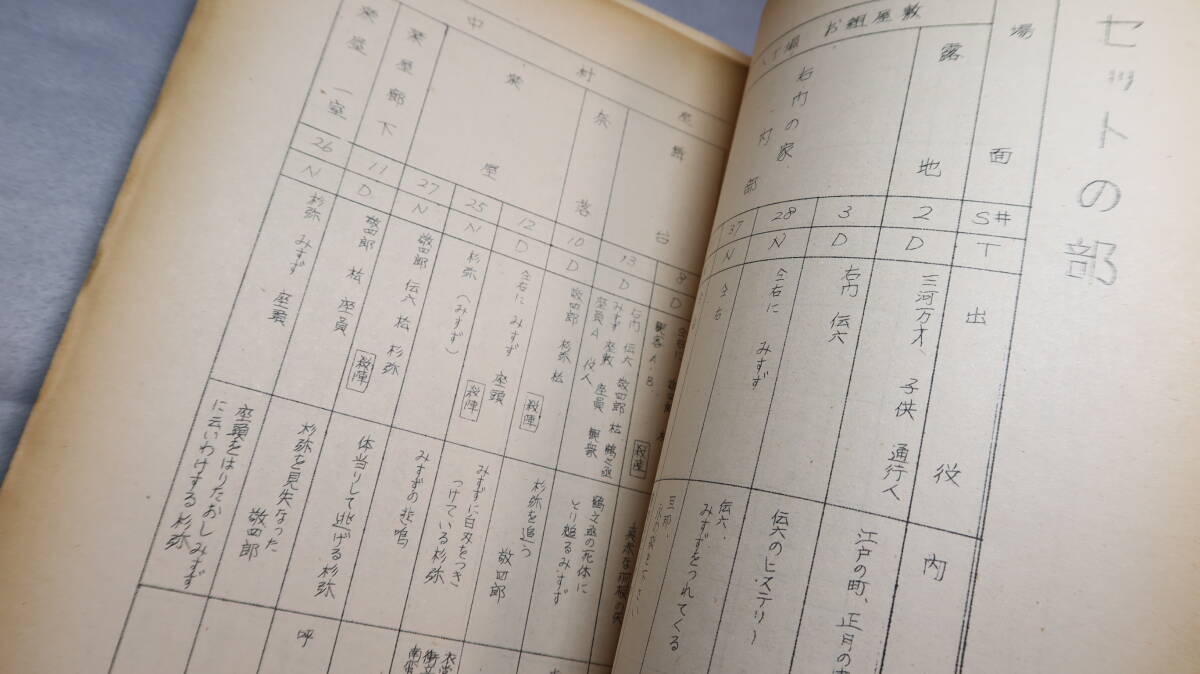 セットの部
場面
S#
T
出役
内
お組屋敷
露地
2
D
三河万才、子供 通行人
江戸の町、正月の
右内の家
内部
3
D
右内 伝六
28
N
全右に みすず
伝六のヒステリー
37
N
全右
伝六、
みすずをつれてくる
中村座
舞台
8
D
観客 A.B.
13
D
右内 伝六 敬四郎 松 鶴之丞
みすず 座数 座員 観衆
座員A 役人
奈落
10
D
敬四郎 杉弥 松
鶴之丞の死体に
とり縋るみすず
楽屋
12
D
全右に みすず 座頭
殺陣
杉弥を追う
敬四郎
25
N
杉弥(みすず)
殺陣
みすずに白刃をつき
つけている杉弥
27
N
敬四郎 伝六 松 杉弥
みすずの悲鳴
楽屋廊下
11
D
敬四郎 松 座員
殺陣
体当りして逃げる杉弥
杉弥を見失なった
敬四郎
呼
楽屋 一室
26
N
杉弥 みすず 座頭
座頭をはりたおしみすず
に云いわけする杉弥